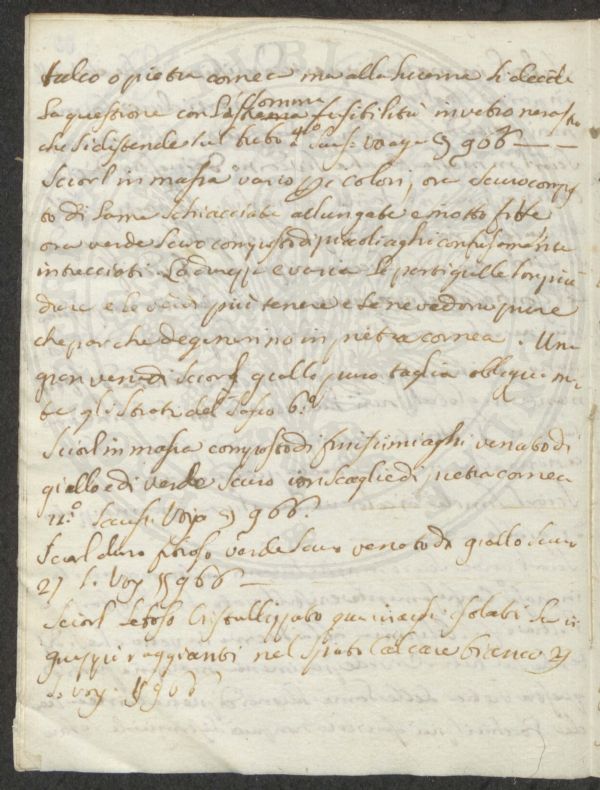 talco o pietra cornea ma alla lucerna si decide
la questione con la somma fusibilità in vetro nerastro
che si distende sul tubo 4.° Sauss. Voyage § 906
Sciorl in massa vario per colori, ora scuro compo
sto di lame schiacciate allungate e molto fitte
ora verde scuro composto di piccoli aghi confusamente
intrecciati. La durezza e varia le parti gialle son più
dure e le verdi più tenere e se ne vedono pure
che par che degenerino in pietra cornea. Una
gran vena di sciorl giallo puro taglia obliquamen
te gli strati del sasso 6.°
Sciorl in massa composto di finissimi aghi venato di
giallo e di verde scuro con scaglie di pietra cornea
n.° Sauss. Voya § 966.
Sciorl duro fibroso verde scuro venato di giallo scuro
2) S. Voy § 966
Sciorl setoso cristallizzato qua in aghi isolati là in
gruppi raggianti nel spato calcare bianco 2)
Voy. §